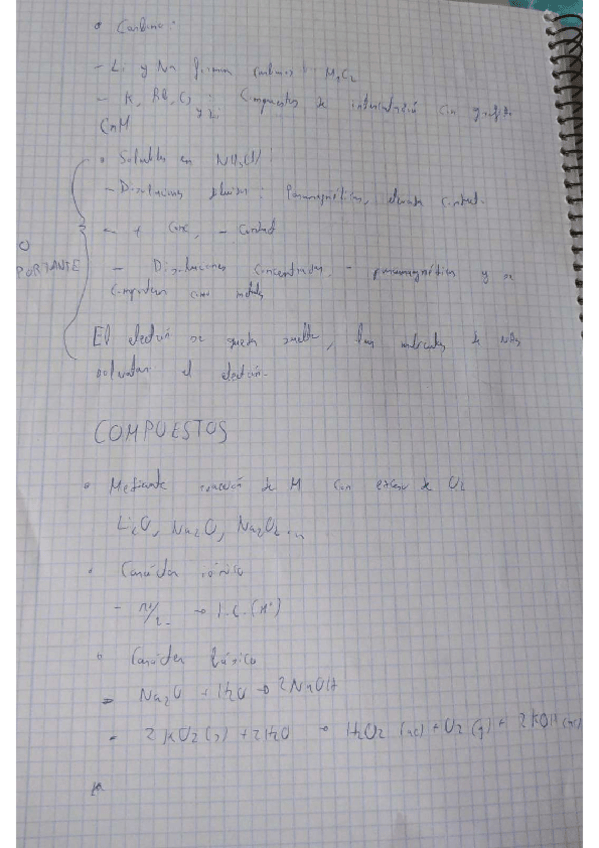 • Carburo:
- Li y Na forman carburos: M2C2
- K, Rb, Cs: Compuestos de intercalación con grafito
CnM
• Solubles en NH3(l):
- Disoluciones diluidas: Paramagnéticas, elevada conduct.
+ Conc, - Conduct
- Disoluciones concentradas, - paramagnéticas y se
comportan como metales
PORTANTE
El electrón se queda suelto, las moléculas de NH3
solvatan el electrón.
COMPUESTOS
• Mediante reacción de M con exceso de O2
Li2O, Na2O, Na2O2...
• Carácter iónico
• Carácter básico
- Na2O + H2O → 2NaOH
- 2KO2(s) + 2H2O → H2O2 (ac) + O2 (g) + 2KOH (ac)